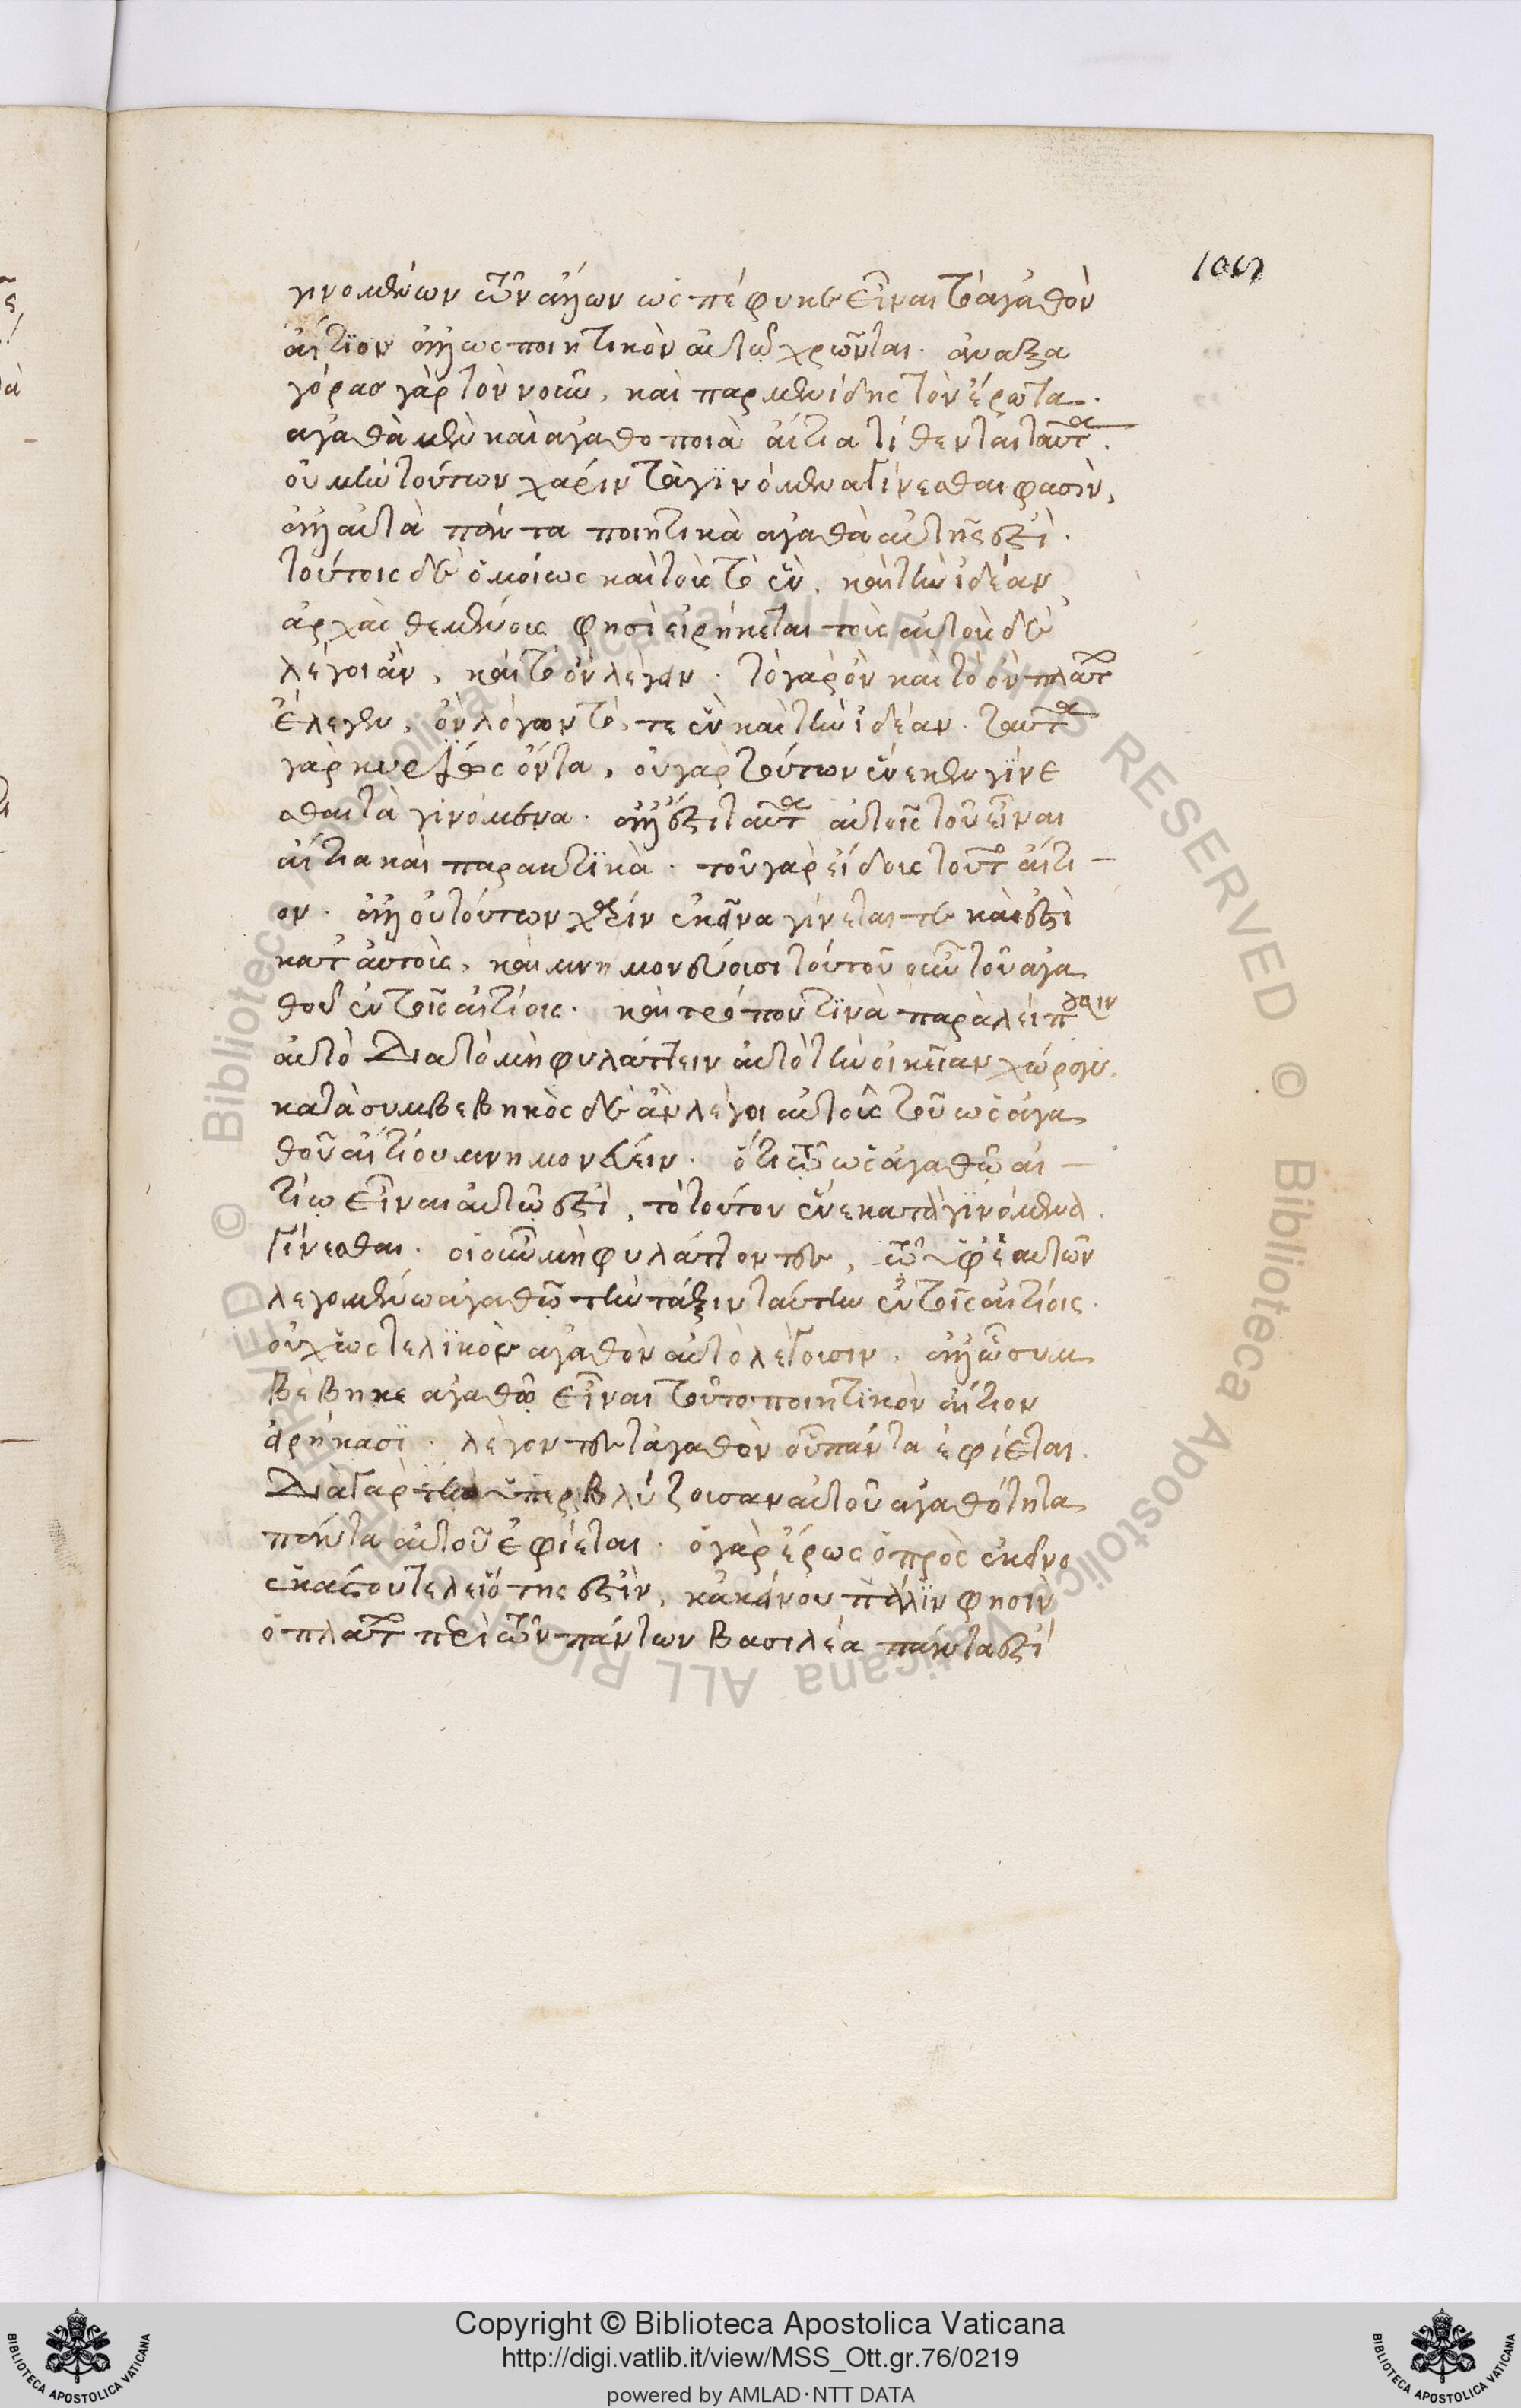 106
γινομένων τῶν ἄλλων ὡς πέφυκε εἶναι τὸ ἀγαθὸν
αἴτϊον ἀλλ' ὡς ποιητικὸν αὐτῶ χρῶνται. ἀναξα
γόρασ γὰρ τὸν νοῦν, καὶ παρμενίδης τὸν ἔρωτα.
ἀγαθὰ μὲν καὶ ἀγαθοποιὰ αἴτια τίθενται ταῦτα.
οὐ μὴν τούτων χάριν τὰ γϊνόμενα γίνεσθαι φασὶν,
ἀλλ' αὐτὰ πάντα ποιητικὰ ἀγαθὰ αὐτῆς ἐστὶ.
τούτοις δὲ ὁμοίως καὶ τοῖς τὸ ἓν, καὶ τὴν ἰδέαν
ἀρχὰς θεμένοις φησὶ εἰρήκεται τοῖς αὐτοὺς δὲ
λέγοι ἂν, καὶ τὸ ὂν λέγων. τὸ γὰρ ὂν καὶ τὸ ὂν πλάτων
ἔλεγεν, ὂν λέγων τό, τε ἓν καὶ τὴν ἰδέαν. ταῦτα
γὰρ κυρίως ὄντα, οὐ γὰρ τούτων ἕνεκεν γίνε
σθαι τὰ γινόμενα. ἀλλ' ἔστι ταῦτα αὐτοῖς τοῦ εἶναι
αἴτια καὶ παρακτϊκὰ. τοῦ γὰρ εἴδους τοῦτ' αἴτι
ον. ἀλλ' οὐ τούτων χάριν ἐκεῖνα γίνεται τε καὶ ἐστὶ
κατ' αὐτοὺς, καὶ μνημονεύουσι τούτου οὖν τοῦ ἀγα
θοῦ ἐν τοῖς αἰτίοις. καὶ τρόπον τϊνὰ παραλείπουσιν
αὐτὸ διὰ τὸ μὴ φυλάττειν αὐτὸ τὴν οἰκείαν χώραν.
κατὰ συμβεβηκὸς δὲ ἂν λέγοι αὐτοὺς τοῦ ὡς ἀγα
θοῦ αἰτίου μνημονεύειν. ὅτι τῶ ὡς ἀγαθῶ αἰ
τίω εἶναι αὐτῶ ἐστὶ, τὸ τούτου ἕνεκα τὰ γϊνόμενα
γίνεσθαι. οἱ οὖν μὴ φυλάττοντες, τῶ ὑφ' ἑαυτῶν
λεγομένω ἀγαθῶ τὴν τάξιν ταύτην ἐν τοῖς αἰτίοις.
οὐχ ὡς τελϊκὸν ἀγαθὸν αὐτὸ λέγουσιν. ἀλλ' ὧ συμ
βέβηκε ἀγαθῶ εἶναι τοῦτο ποιητϊκὸν αἴτιον
εἰρήκασϊ. λέγοντες τἀγαθὸν οὗ πάντα ἐφίεται.
διὰ γὰρ τὴν ὑπερβλύζουσαν αὐτοῦ ἀγαθότητα
πάντα αὐτοῦ ἐφίεται. ὁ γὰρ ἔρως ὁ πρὸς ἐκεῖνο
ἑκάστου τελειότης ἐστὶν, κἀκείνου πάλϊν φησὶν
ὁ πλάτων περὶ τῶν πάντων βασιλέα πάντα ἐστὶ
Copyright © Biblioteca Apostolica Vaticana
http://digi.vatlib.it/view/MSS_Ott.gr.76/0219
powered by AMLAD·NTT DATA